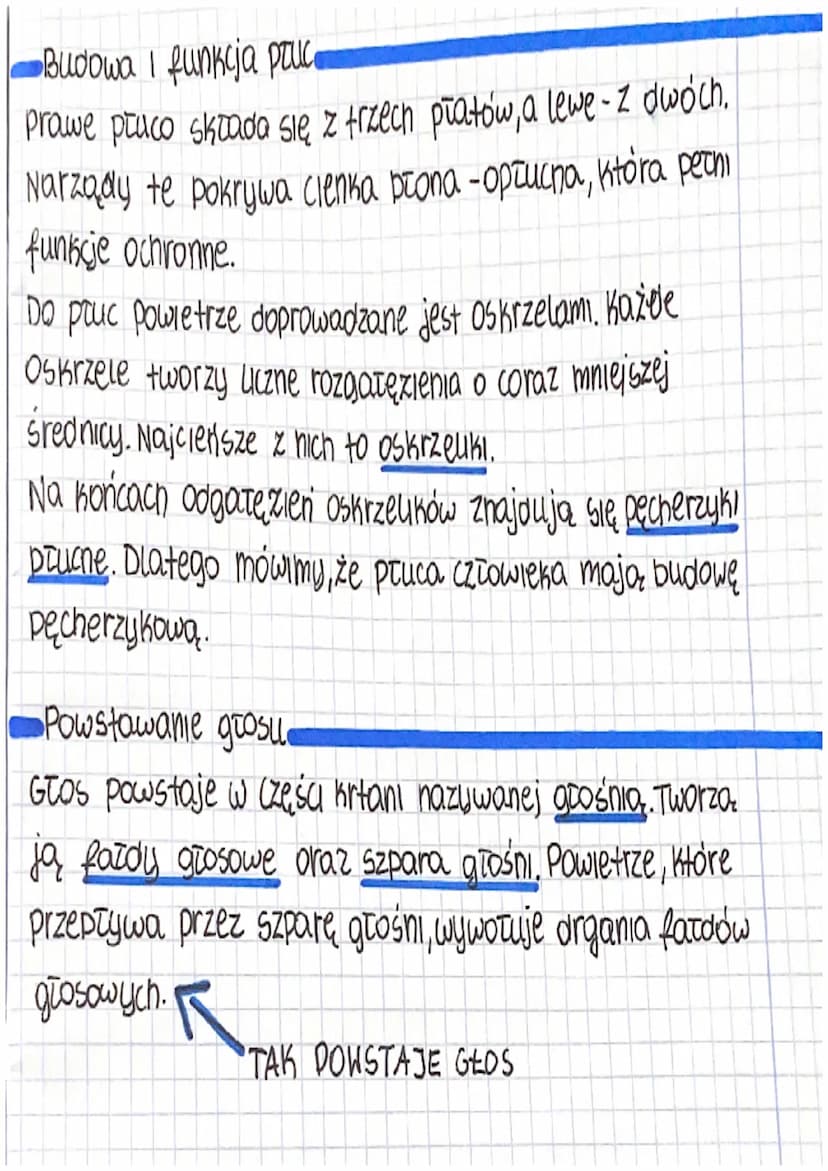 Budowa i funkcja płuc
Prawe płuco składa się z trzech płatów, a lewe - z dwóch.
Narządy te pokrywa cienka błona - opłucna, która pełni
funkcje ochronne.
Do płuc powietrze doprowadzane jest oskrzelami. Każde
oskrzele tworzy liczne rozgałęzienia o coraz mniejszej
średnicy. Najcieńsze z nich to oskrzeliki.
Na końcach odgałęzień oskrzelików znajdują się pęcherzyki
płucne. Dlatego mówimy, że płuca człowieka mają budowę
pęcherzykową.
Powstawanie głosu
Głos powstaje w części krtani nazywanej głośnią. Tworzą
ją fałdy głosowe oraz szpara głośni. Powietrze, które
przepływa przez szparę głośni, wywołuje drgania fałdów
głosowych.
TAK POWSTAJE GŁOS